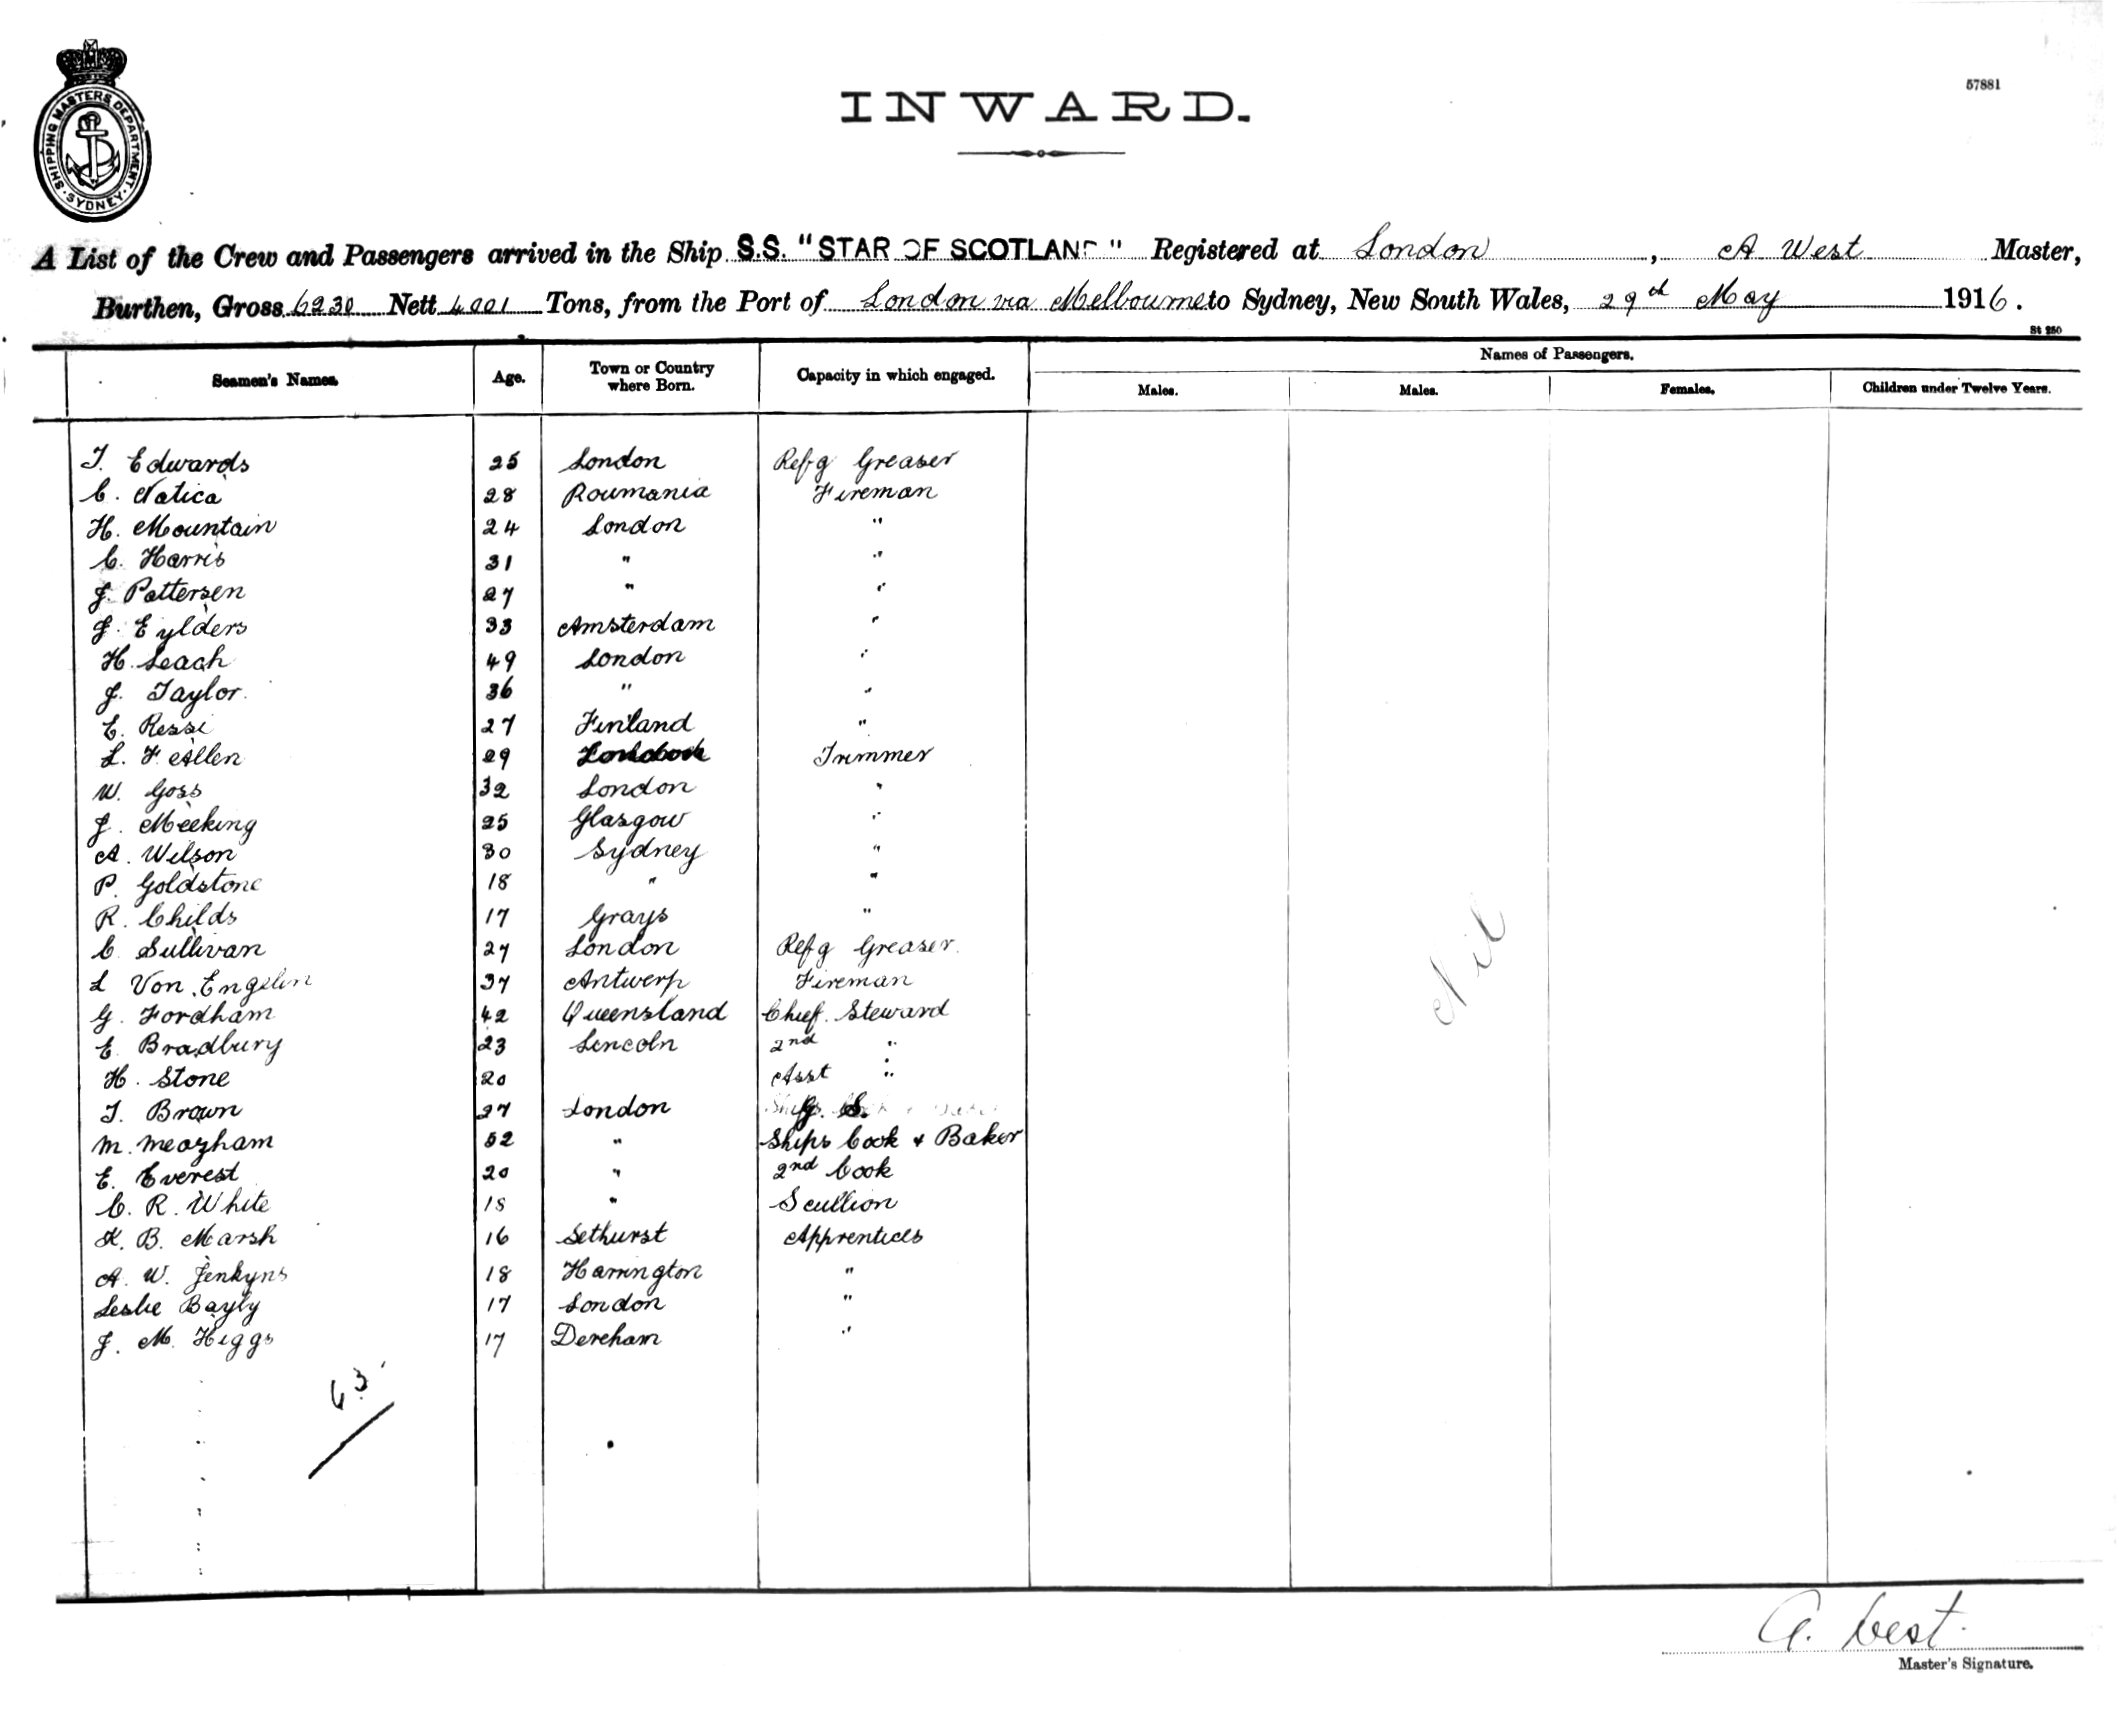 SHIPPING MASTERS DEPARTMENT. SYDNEY
57881
INWARD.
A List of the Crew and Passengers arrived in the Ship S.S. "STAR OF SCOTLAND" Registered at London, A West Master,
Burthen, Gross 6230 Nett 4001 Tons, from the Port of London via Melbourne to Sydney, New South Wales, 29th May 1916.
St 250
Seamen's Names. Age. Town or Country where Born. Capacity in which engaged. Names of Passengers.
Males. Males. Females. Children under Twelve Years.
T. Edwards 25 London Refg Greaser
C. Natica 28 Roumania Fireman
H. Mountain 24 London "
C. Harris 31 " "
J. Pattersen 27 " "
J. Eylders 33 Amsterdam "
H. Leach 49 London "
J. Taylor. 36 " "
E. Ressi 27 Finland "
L. F. Allen 29 Trimmer
W. Goss 32 London "
J. Meeking 25 Glasgow "
A. Wilson 30 Sydney "
P. Goldstone 18 " "
R. Childs 17 Grays "
C. Sullivan 27 London Refg Greaser.
L Von Engelin 37 Antwerp Fireman
G. Fordham 42 Queensland Chief Steward
E. Bradbury 23 Lincoln 2nd "
H. Stone 20 Asst "
T. Brown 27 London G. S.
M. Meazham 52 " Ships Cook & Baker
E. Everest 20 " 2nd Cook
C. R. White 18 " Scullion
K. B. Marsh 16 Sethurst Apprentices
A. W. Jenkyns 18 Harrington "
Leslie Bayly 17 London "
J. M. Higgs 17 Dereham "
Nil
63
A. West.
Master's Signature.